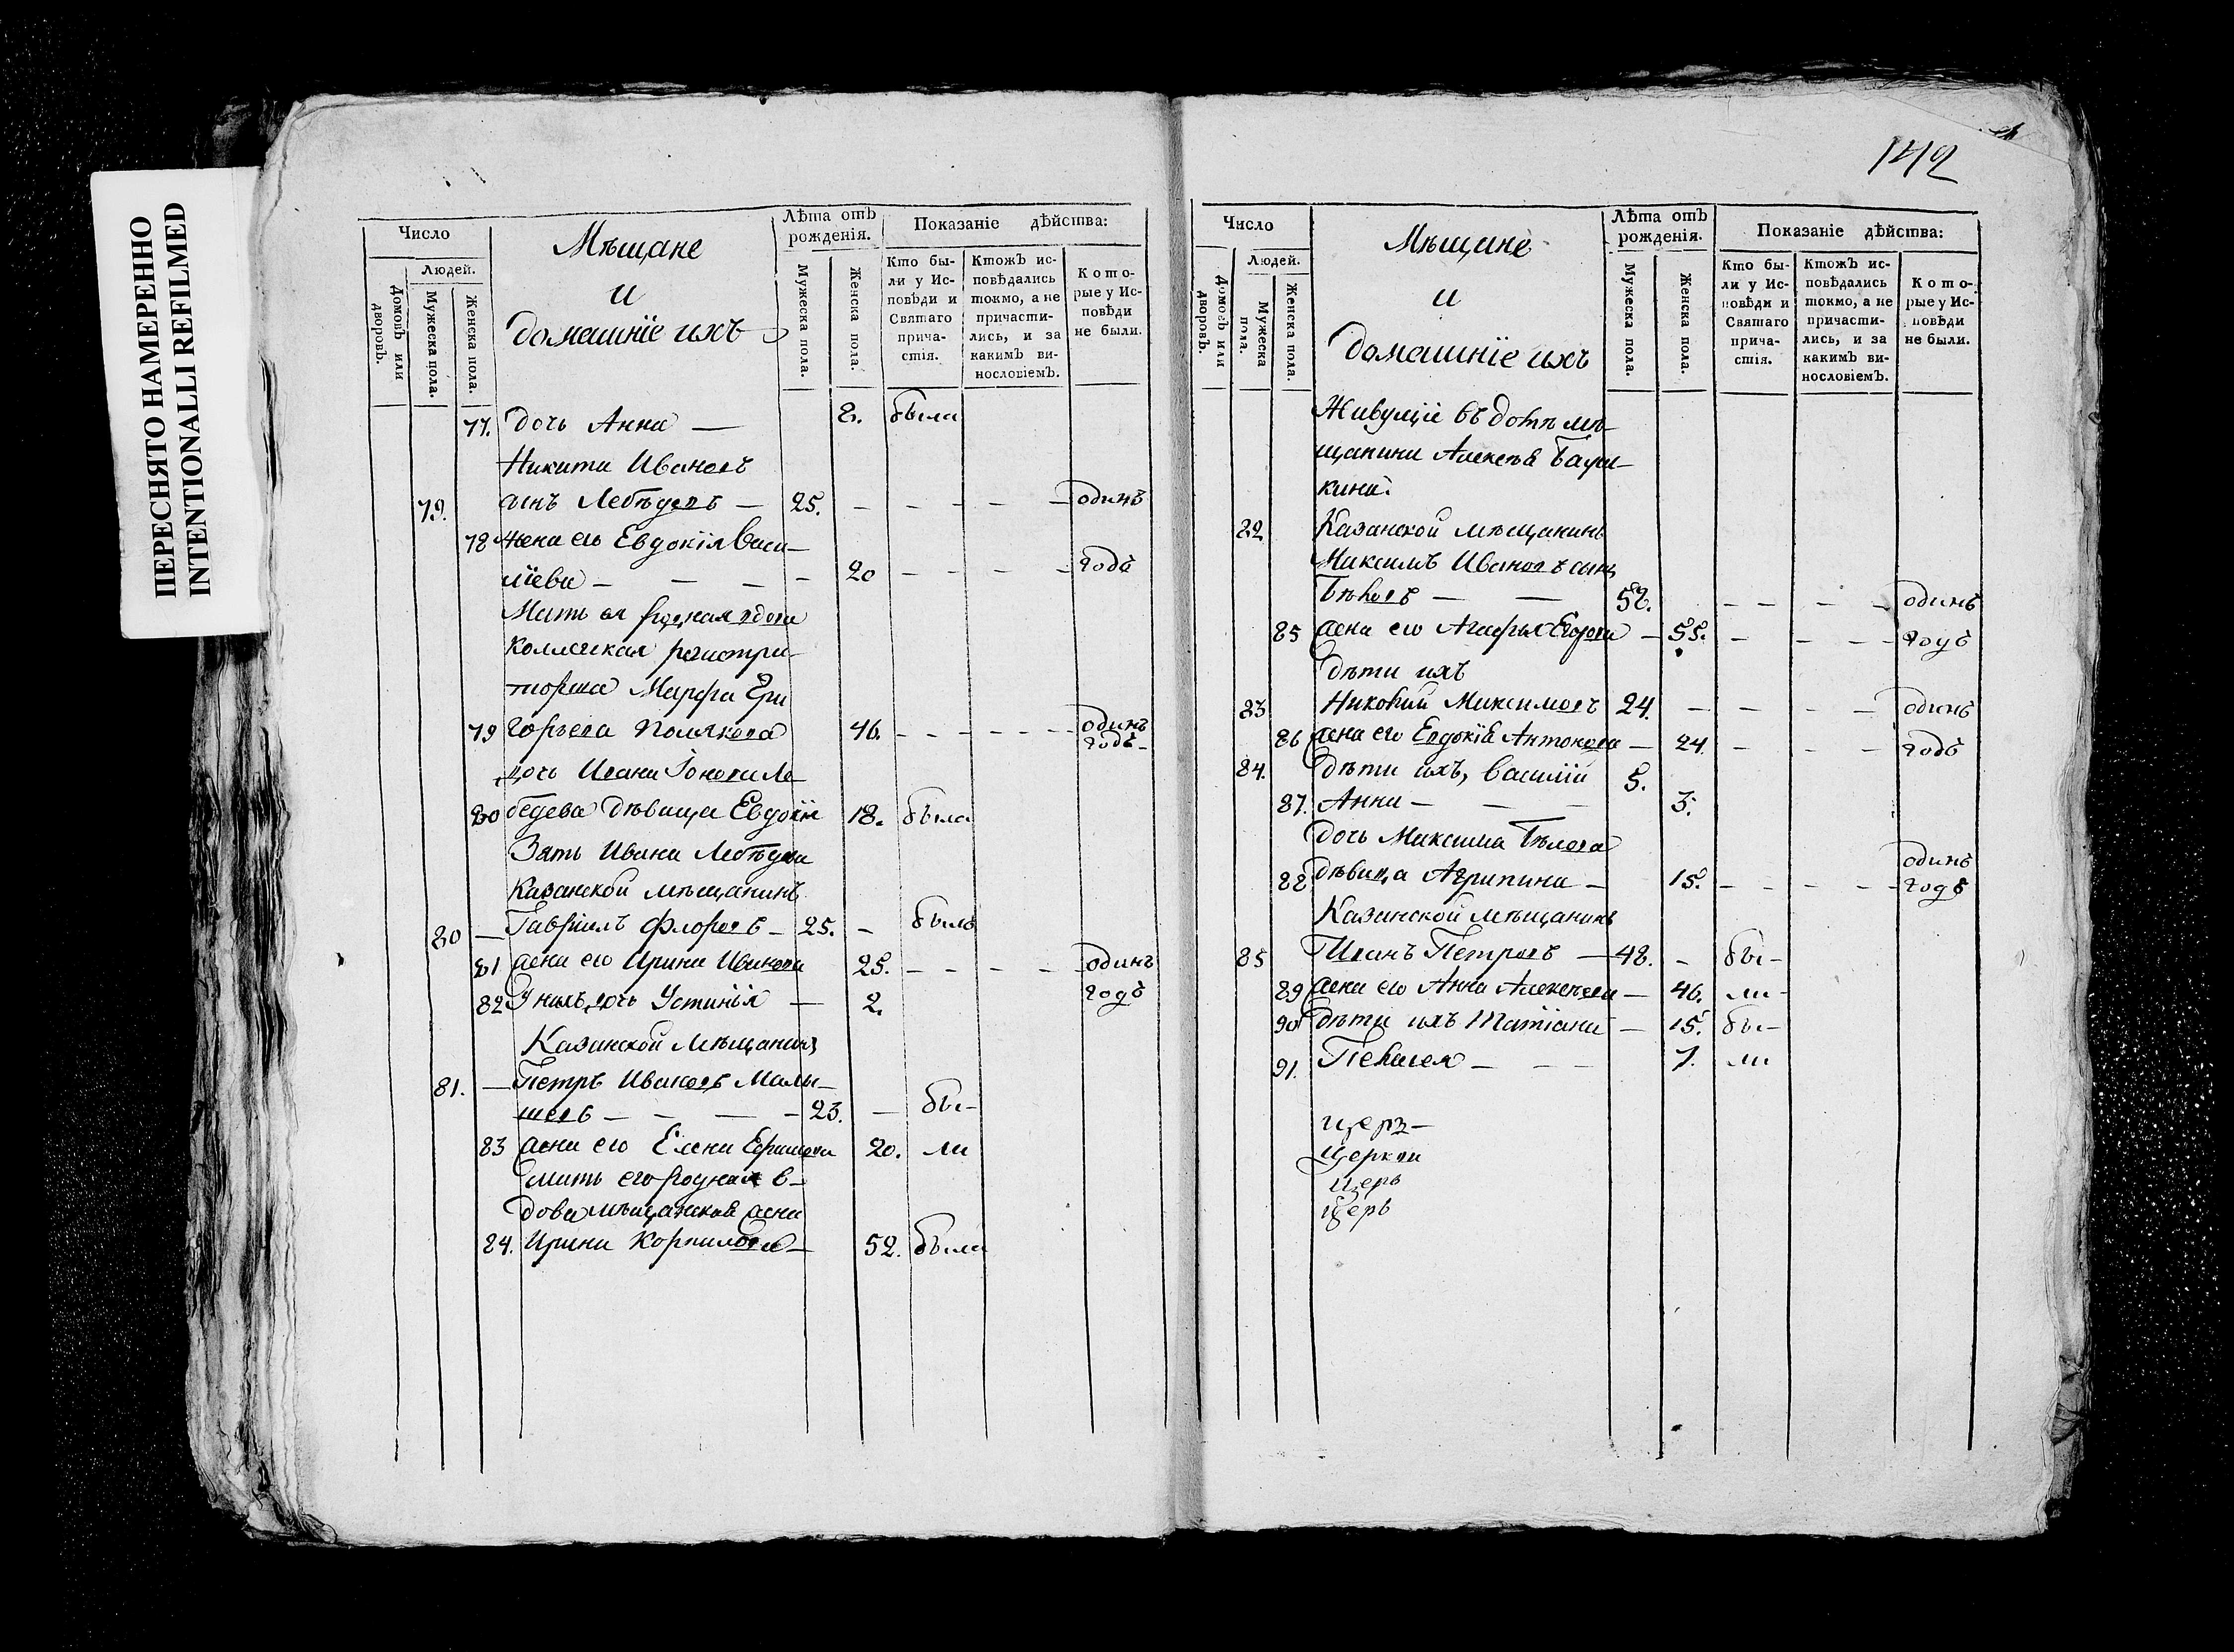 ПЕРЕСНЯТО НАМЕРЕННО
INTENTIONALLI REFILMED
Число
Людей.
Домовъ или дворовъ.
Мужеска пола.
Женска пола.
Мѣщане
и
домашніе ихъ
Лѣта отъ рожденія.
Мужеска пола.
Женска пола.
Показаніе дѣйства:
Кто бы-
ли у Ис-
повѣди и
Святаго
прича-
стія.
Ктожъ ис-
повѣдались
токмо, а не
причасти-
лись, и за
какимъ ви-
нословіемъ.
Кото-
рые у Ис-
повѣди
не были.
77. дочь Анна — 8. была
Никита Ивановъ
79. сынъ Лебѣдевъ — 25. — — — — — одинъ
78 жена его Евдокія Васи-
ліева — — — — 20 — — — — годъ
Мать ея родная вдова
Коллежская регистра-
торша Марфа Гри
79 горьева Полякова 46. — — — — — — одинъ
годъ —
дочь Ивана Іонова Ле-
80 бедева дѣвица Евдокія 18. была
Зять Ивана Лебѣдева
Казанской мѣщанинъ
80 — Гавріилъ Флоровъ — 25. — былъ
81 жена его Ирина Иванова 25. — — — — одинъ
82 У нихъ дочь Устинія — 2. годъ
Казанской Мѣщанинъ
81. — Петръ Ивановъ Малы-
шевъ — — — — 23. — бы-
83 жена его Елена Ефимова 20. ли
мать его родная в-
дова мѣщанская жена
84. Ирина Корнилова — 52. была
142
Число
Людей.
Домовъ или дворовъ.
Мужеска пола.
Женска пола.
Мѣщане
и
домашніе ихъ
Лѣта отъ рожденія.
Мужеска пола.
Женска пола.
Показаніе дѣйства:
Кто бы-
ли у Ис-
повѣди и
Святаго
прича-
стія.
Ктожъ ис-
повѣдались
токмо, а не
причасти-
лись, и за
какимъ ви-
нословіемъ.
Кото-
рые у Ис-
повѣди
не были.
Живущіе въ домѣ мѣ-
щанина Алексѣя
кина.
82 Казанской мѣщанинъ
Максимъ Ивановъ сынъ
Бѣловъ — — 58. — — — — одинъ
85 жена его Агафья Егорова — 55. — — — — годъ
дѣти ихъ
83 Максимовъ 24. — — — — одинъ
86 жена его Евдокія Антонова — 24. — — — годъ
84. дѣти ихъ, Василій 5.
87. Анна — — — 3.
дочь Максима Бѣлова
одинъ
88 дѣвица Агрипина — 15. — — — — годъ
Казанской мѣщанинъ
85 Иванъ Петровъ — 48. — бы-
89 жена его Анна Алексѣева — 46. ли-
90 дѣти ихъ Татіана — 15. бы-
91. Пелагея — — — 7. ли
церз—
Церкви
церв
церв